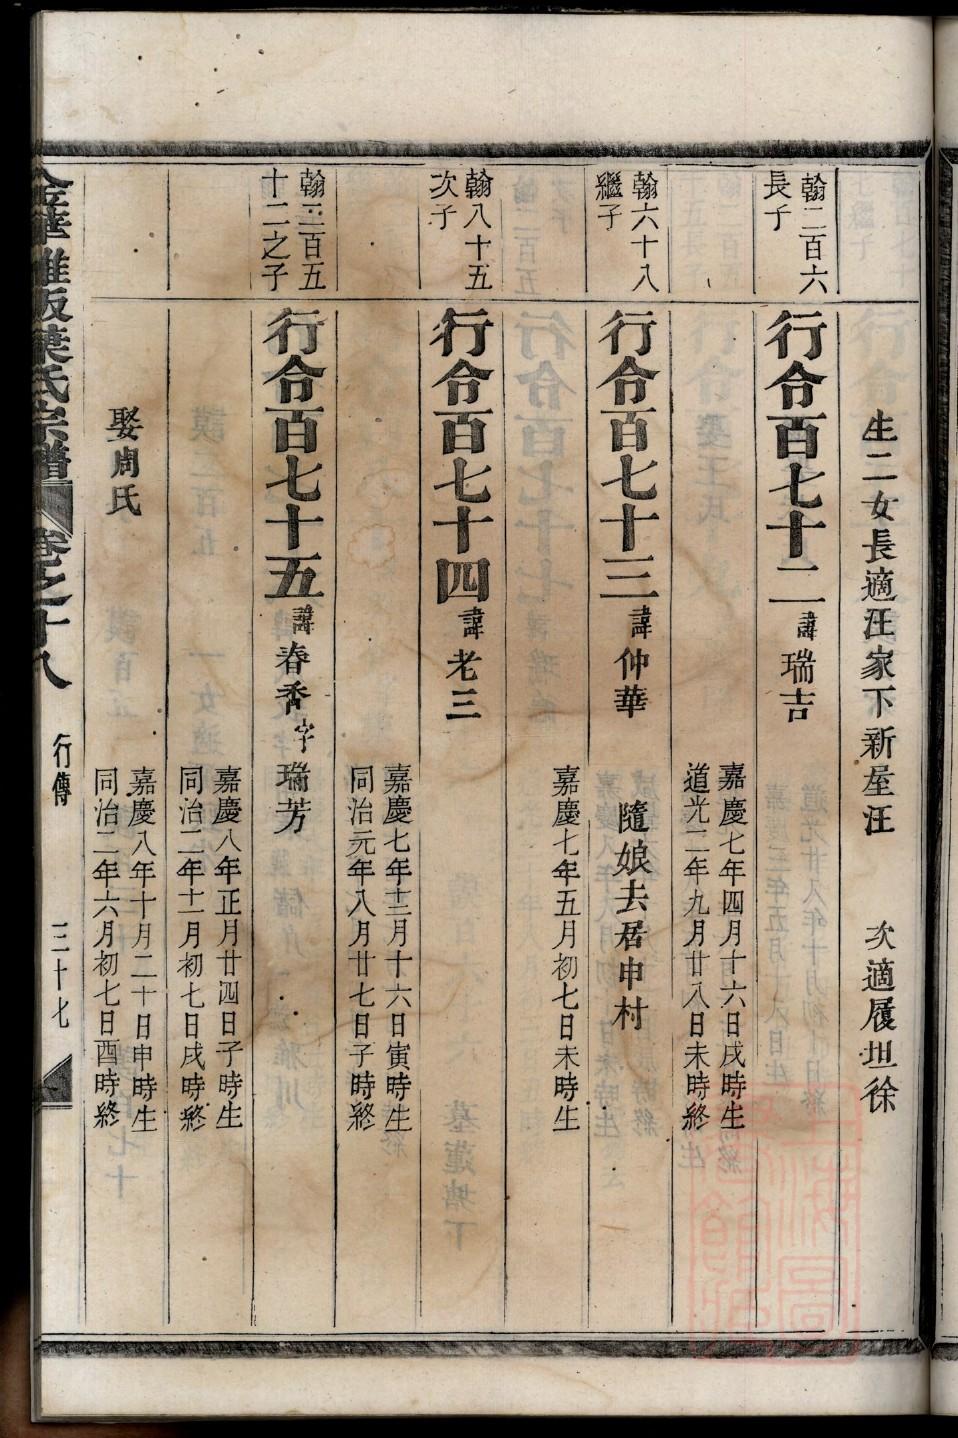 生二女長適汪家下新屋汪　次適履坦徐
翰二百六
長子
行令百七十二諱瑞吉
嘉慶七年四月十六日戌時生
道光二年九月廿八日未時終
翰六十八
繼子
行令百七十三諱仲華　隨娘去居申村
嘉慶七年五月初七日未時生
翰八十五
次子
行令百七十四諱老三
嘉慶七年十二月十六日寅時生
同治元年八月廿七日子時終
翰二百五
十二之子
行令百七十五諱春秀字瑞芳
嘉慶八年正月廿四日子時生
同治二年十一月初七日戌時終
娶周氏
嘉慶八年十月二十日申時生
同治二年六月初七日酉時終
金華雅畈葉氏宗譜　卷之十八　行傳　三十七